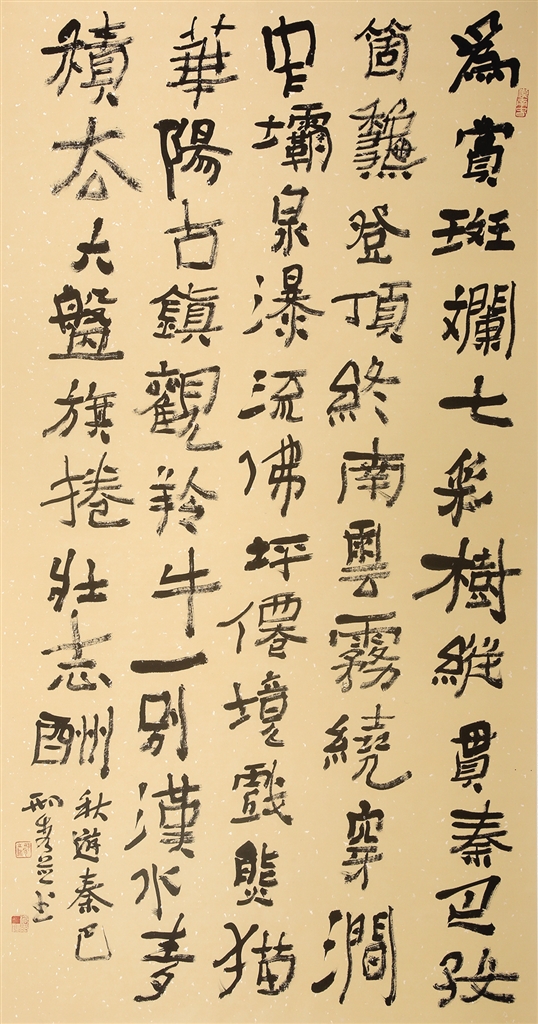 為賞斑斕七彩樹縱貫秦巴好
箇龝登頂終南雲霧繞穿澗
壩泉瀑流佛坪僊境戲熊猫
華陽古鎮觀羚牛一別漢水麦
積去六盤旗捲壯志酬
秋遊秦巴